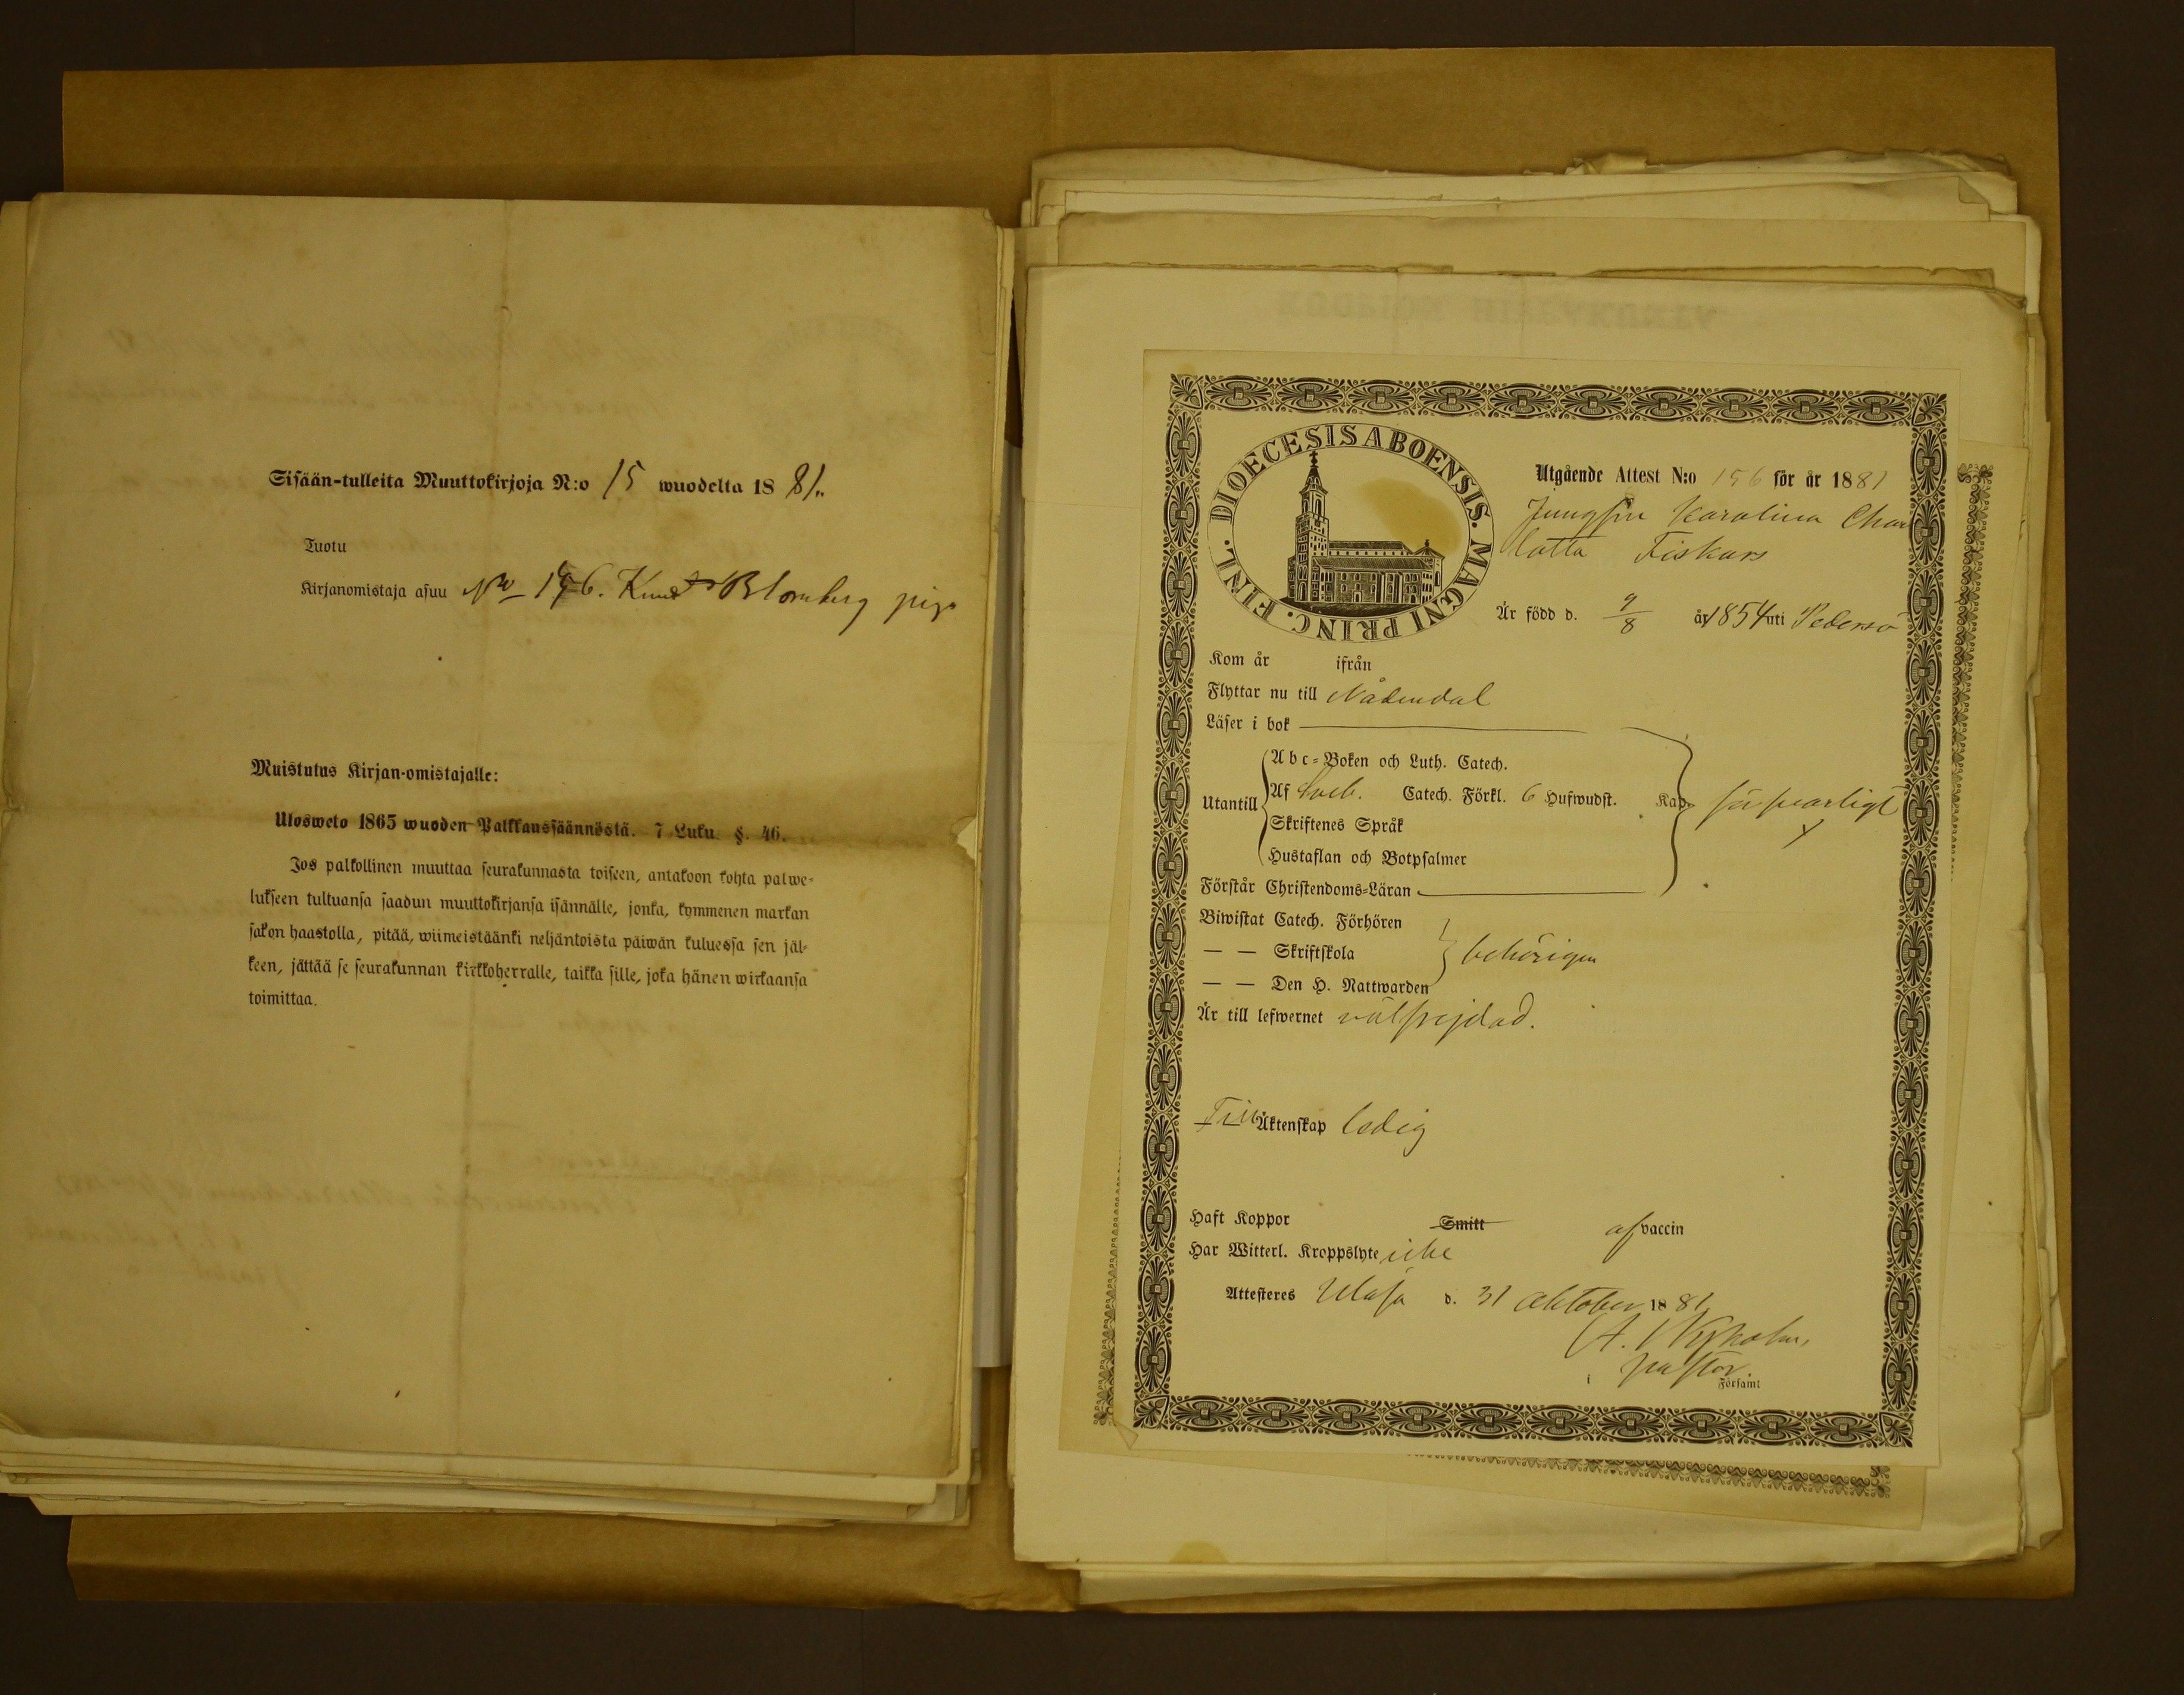 Sisään-tulleita Muuttokirjoja N:o 15 wuodelta 18 81.
Tuotu
Kirjanomistaja asuu No 196. Blomberg piga
Muistutus Kirjan-omistajalle:
Ulosweto 1865 wuoden Palkkaussäännöstä. 7 Luku. §. 46.
Jos palkollinen muuttaa seurakunnasta toiseen, antakoon kohta palwe-
lukseen tultuansa saadun muuttokirjansa isännälle, jonka, kymmenen markan
sakon haastolla, pitää, wiimeistäänki neljäntoista päiwän kuluessa sen jäl-
keen, jättää se seurakunnan kirkkoherralle, taikka sille, joka hänen wirkaansa
toimittaa.
DIOECESIS ABOENSIS. MAGNI PRINC. FINL.
Utgående Attest N:o 156 för år 1881
Jungfru Karolina Char
lotta Fiskars
Är född d. 9/8 år 1854 uti Pedersö
Kom år ifrån
Flyttar nu till Nådendal
Läser i bok
Abc-Boken och Luth. Catech.
Utantill Af Sveb. Catech. Förkl. 6 Hufwudst. Kap. försvarligt
Skriftenes Språk
Hustaflan och Botpsalmer
Förstår Christendoms-Läran
Biwistat Catech. Förhören
— — Skriftskola behörigen
— — Den H. Nattwarden
Är till lefwernet välfrejdad.
Till Äktenskap ledig
Haft Koppor Smitt af vaccin
Har Witterl. Kroppslyte icke
Attesteres Wasa d. 31 oktober 1881
pastor.
i Församl